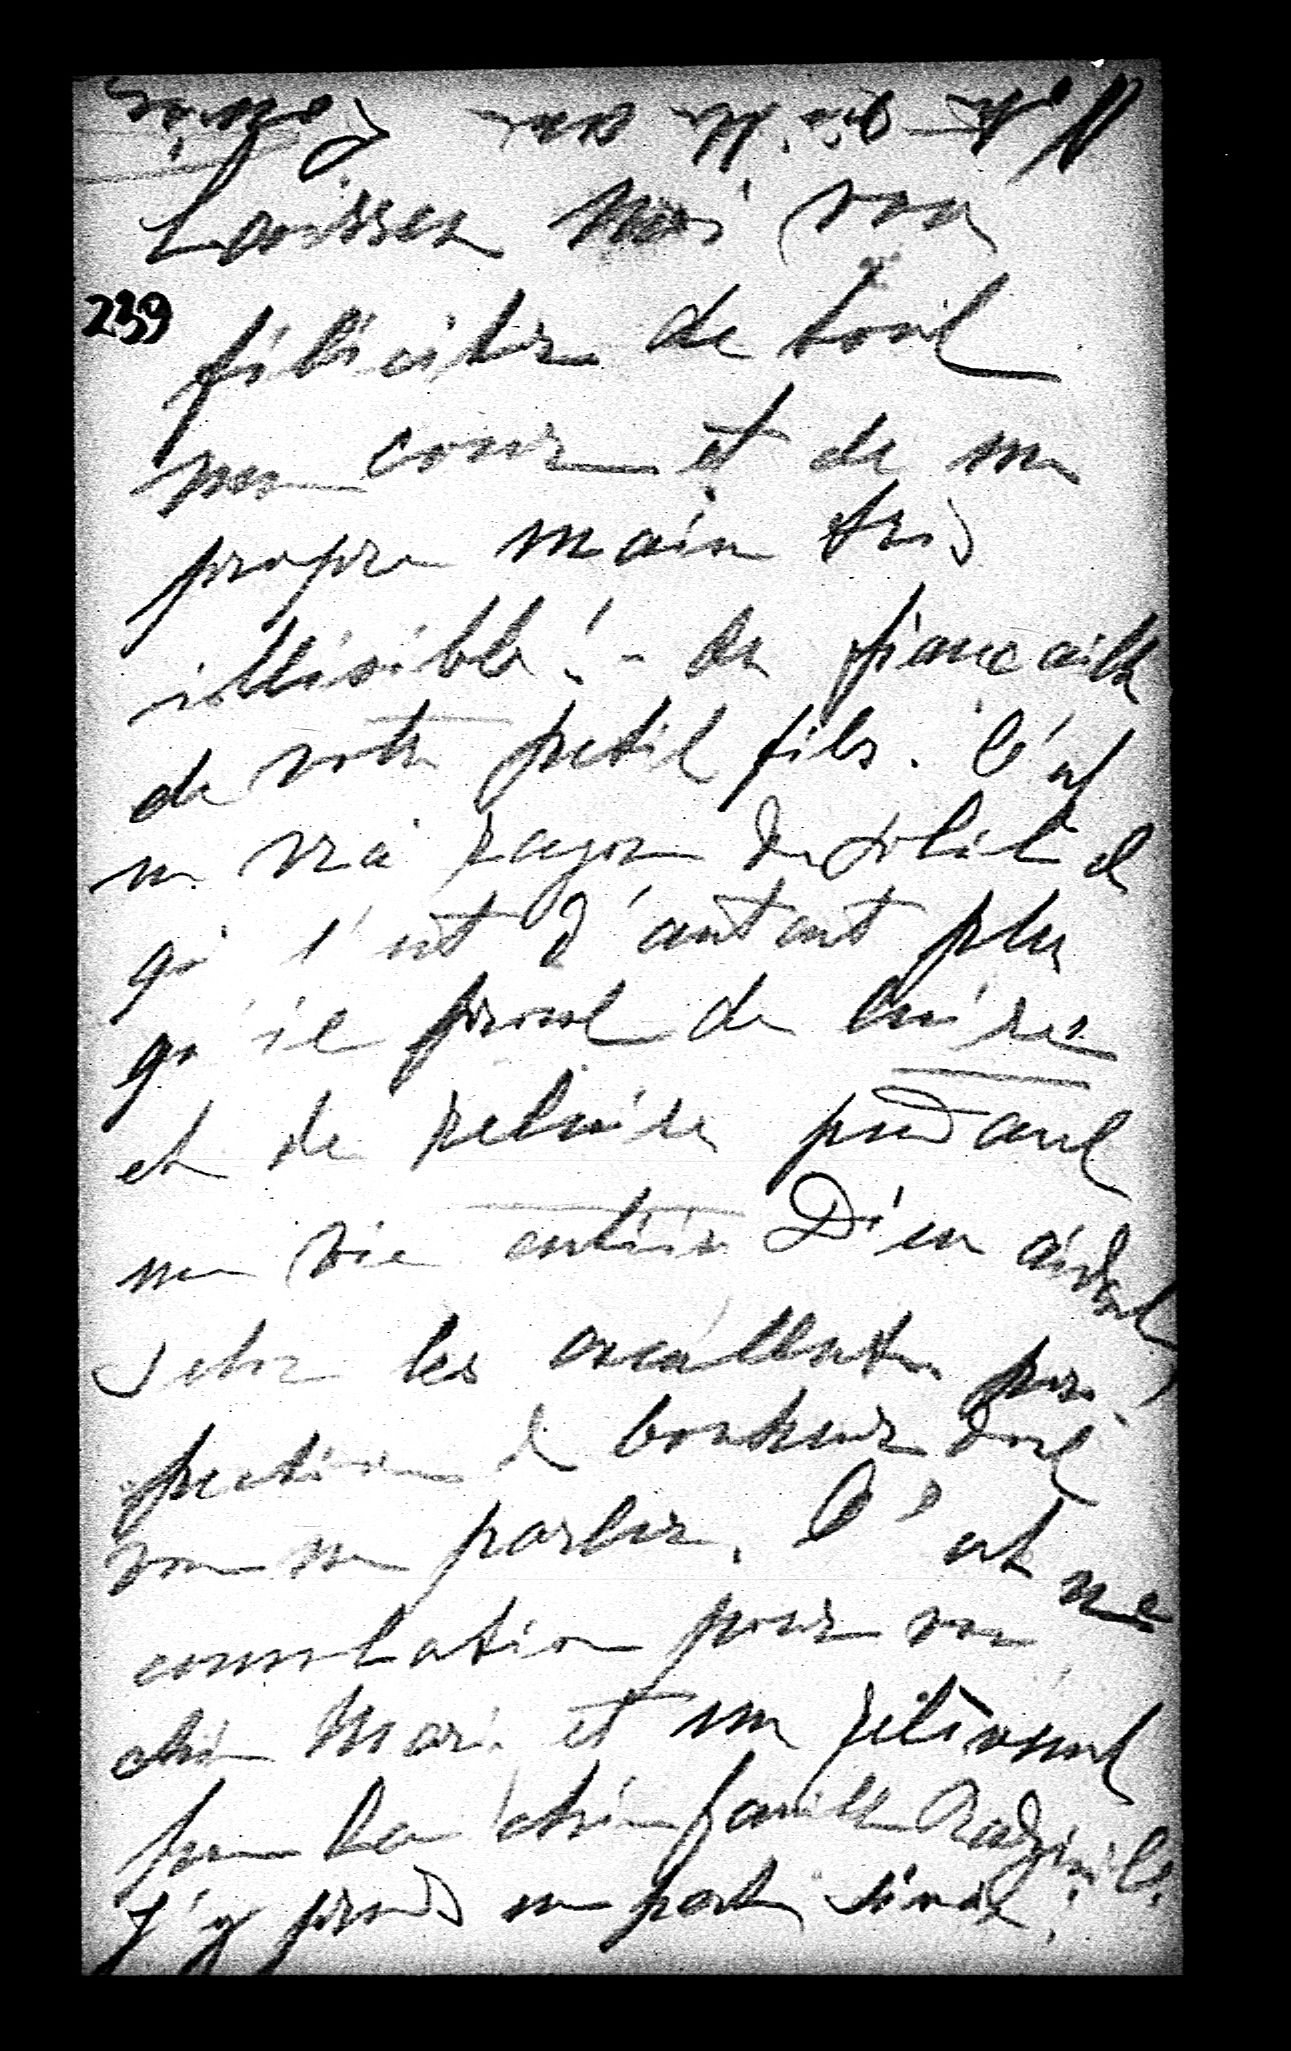 Laissez moi vous
239
féliciter de tout
mon coeur et de ma
propre main très
illisible! - des fiançailles
de votre petit fils. C'est
un vrai rayon de soleil et
qui l'est d'autant plus
qu'il promet de luire
et de reluire pendant
une vie entière Dieu aidant
selon les excellentes pers-
pectives de bonheur dont
vous me parlez. C'est une
consolation pour vous
chère Marie et un
pour la chère famille Radziwill.
J'y prends une part sincère!